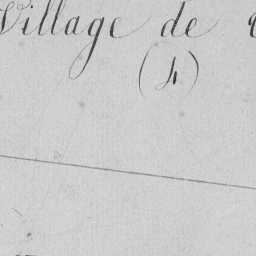 Village de
(4)